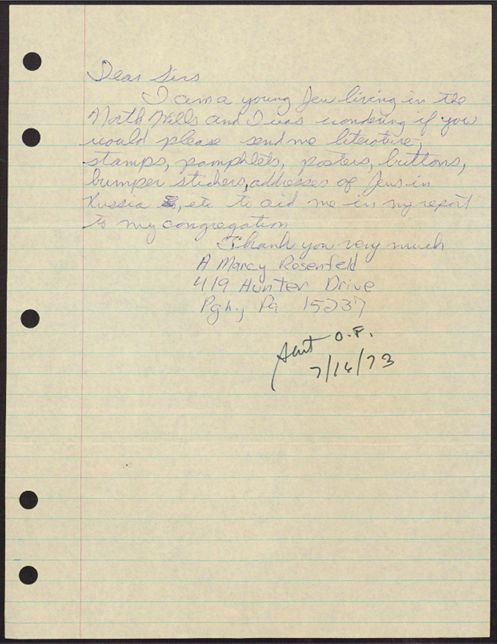 Dear Sirs
I am a young Jew living in the
North Hills and I was wondering if you
would please send me literature,
stamps, pamphlets, posters, buttons,
bumper stickers, addresses of Jews in
Russia, etc to aid me in my report
to my congregation
Thank you very much
A Marcy Rosenfeld
419 Hunter Drive
Pgh., Pa 15237
Sent O.P.
7/16/73